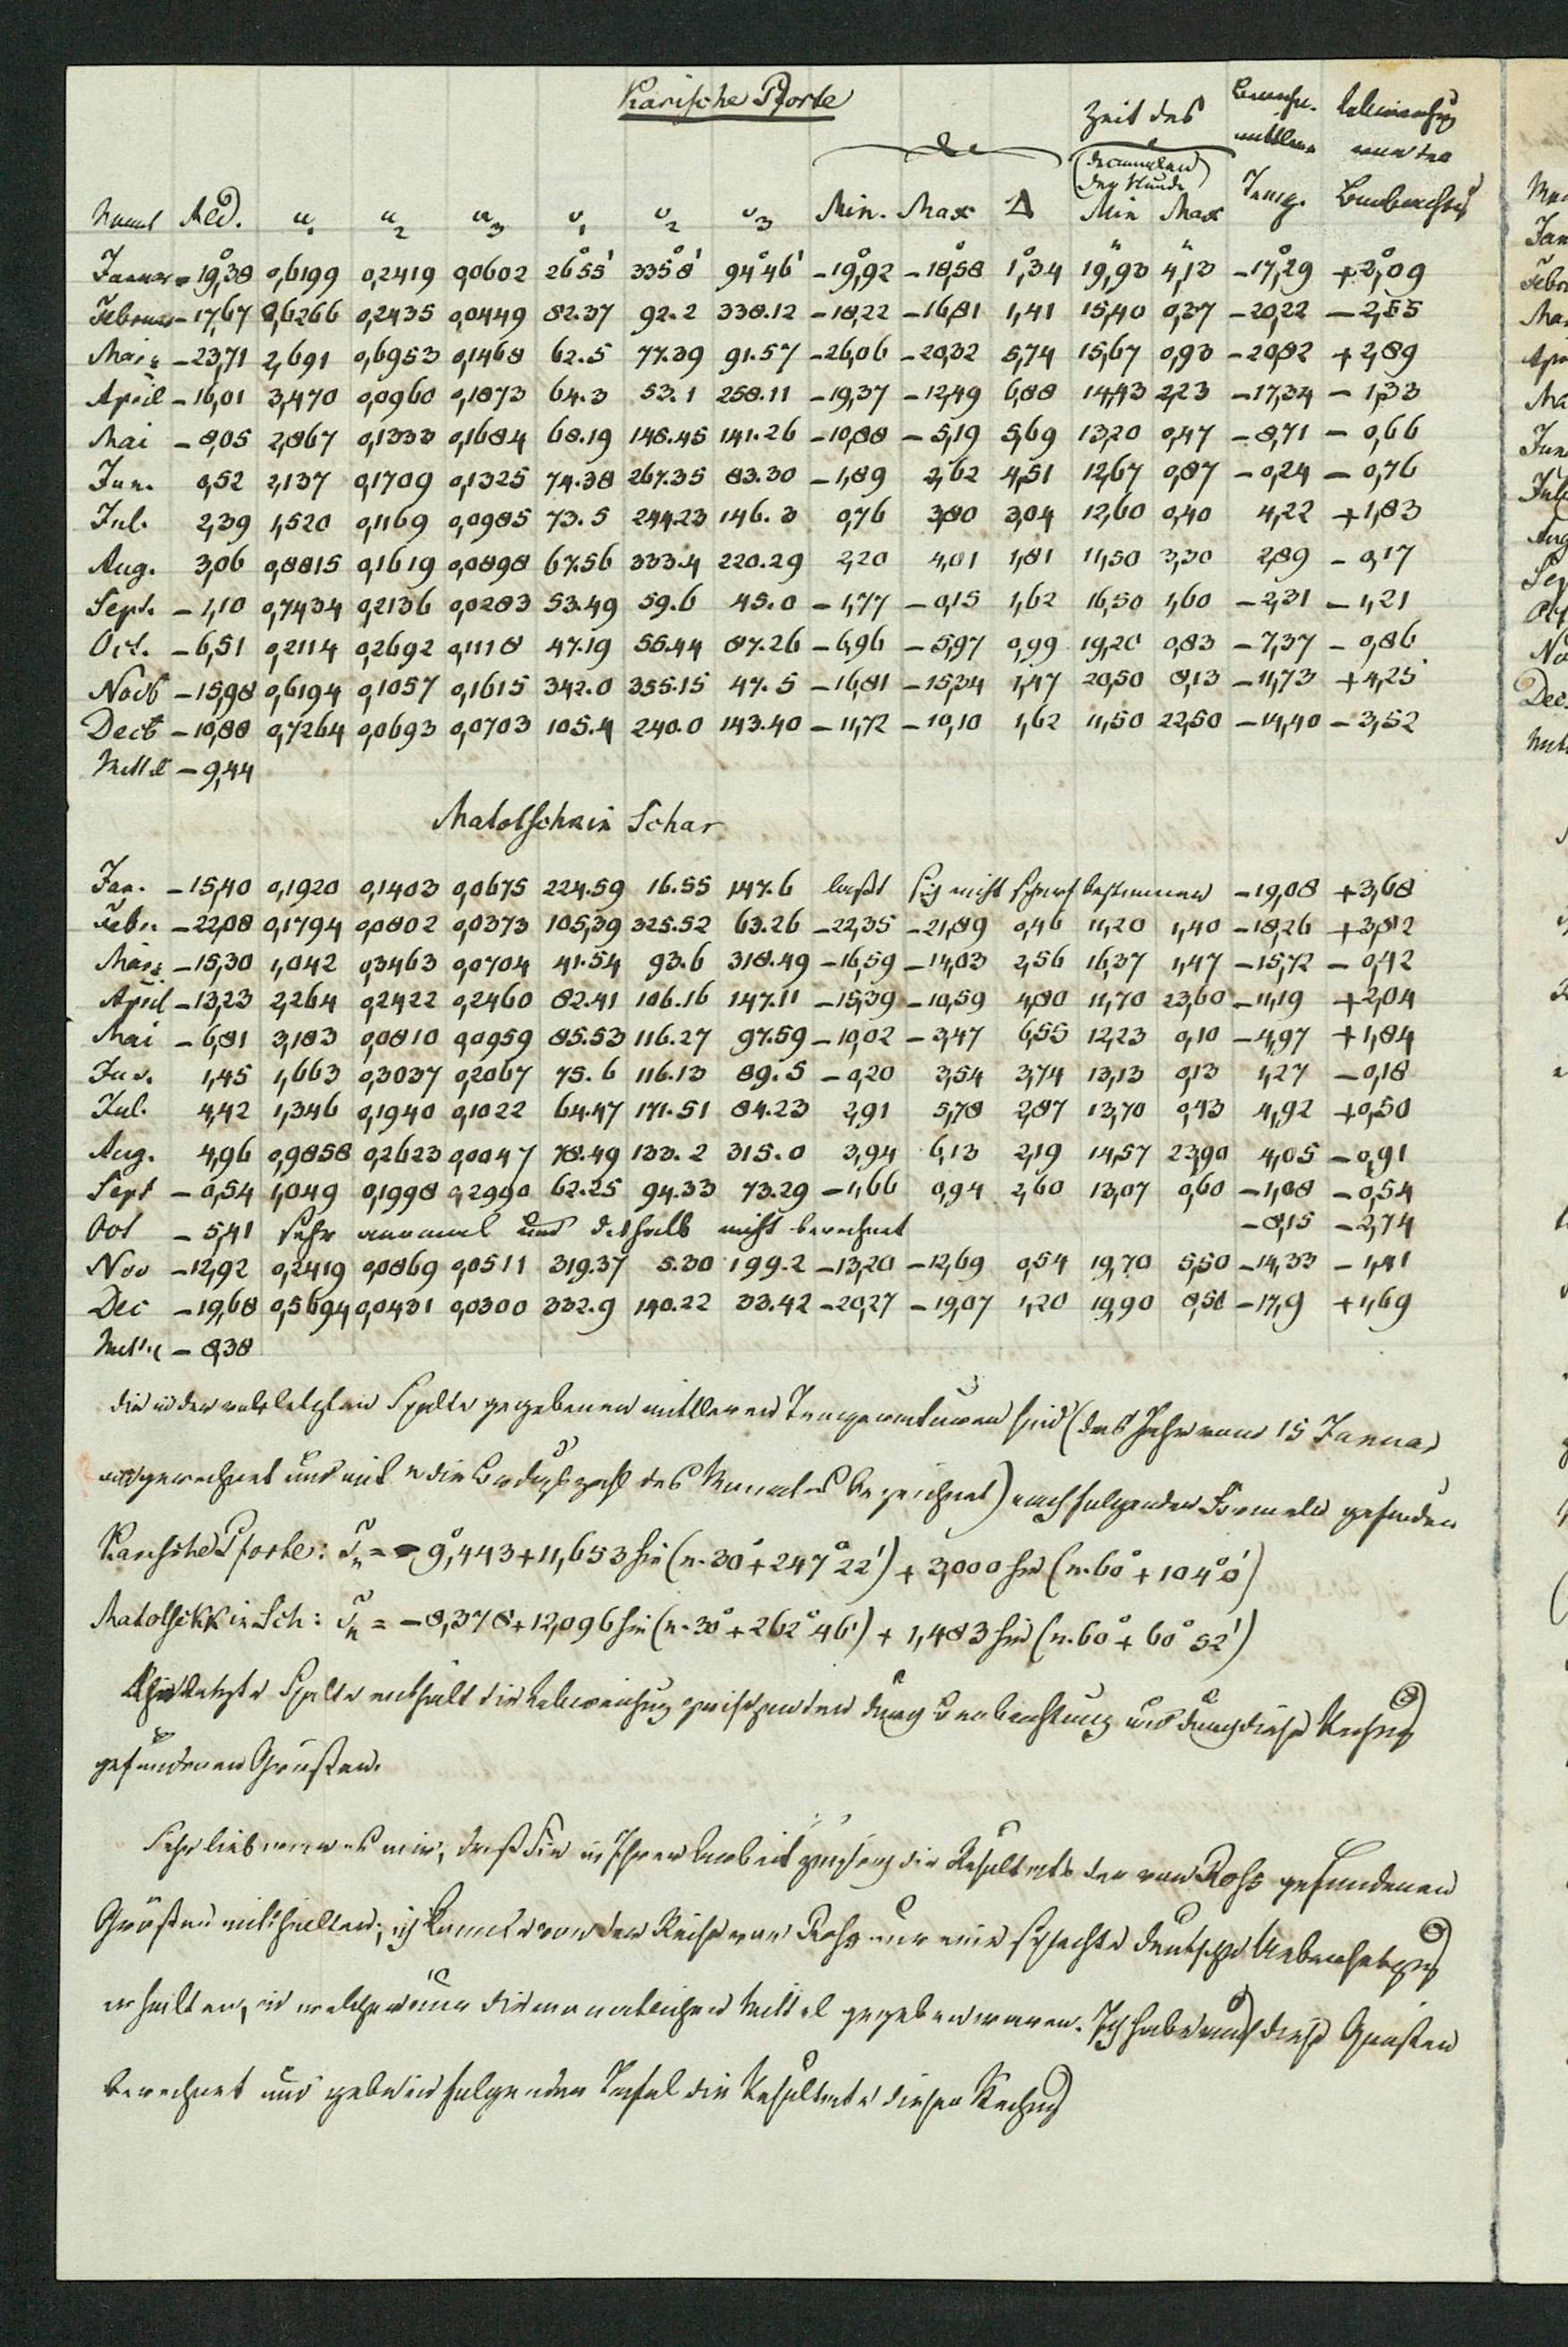 Karische Pforte
Zeit des Berechn. Abweichung
mittlere von der
Decimalen der Stunde
Monat Med. u₁ u₂ u₃ v₁ v₂ v₃ Min. Max Δ Min Max Temp. Beobachtung
Januar -19°,38 0,6199 0,2419 0,0602 26°55' 335°8' 94°46' -19°,92 -18°,58 1°,34 19,93 4,13 -17°,29 +2°,09
Februar -17,67 0,6266 0,2435 0,0449 82.37 92.2 338.12 -18,22 -16,81 1,41 15,40 0,27 -20,22 -2,55
März -23,71 2,691 0,6953 0,1468 62.5 77.39 91.57 -26,06 -20,32 5,74 15,67 0,93 -20,82 +2,89
April -16,01 3,470 0,0960 0,1873 64.3 53.1 258.11 -19,37 -12,49 6,88 14,43 2,23 -17,34 -1,33
Mai -8,05 2,867 0,1333 0,1684 68.19 148.45 141.26 -10,88 -5,19 5,69 13,20 0,47 -8,71 -0,66
Jun. 0,52 2,137 0,1709 0,1325 74.38 267.35 83.30 -1,89 2,62 4,51 12,67 0,87 -0,24 -0,76
Jul. 2,39 1,520 0,1169 0,0985 73.5 244.23 146.3 0,76 3,80 3,04 12,60 0,40 4,22 +1,83
Aug. 3,06 0,8815 0,1619 0,0898 67.56 333.4 220.29 2,20 4,01 1,81 11,50 3,30 2,89 -0,17
Sept. -1,10 0,7434 0,2136 0,0283 53.49 59.6 45.0 -1,77 -0,15 1,62 16,50 1,60 -2,31 -1,21
Oct. -6,51 0,2114 0,2692 0,1118 47.19 55.44 87.26 -6,96 -5,97 0,99 19,20 0,83 -7,37 -0,86
Novb -15,98 0,6194 0,1057 0,1615 342.0 355.15 47.5 -16,81 -15,34 1,47 20,50 8,13 -11,73 +4,25
Decb -10,88 0,7264 0,0693 0,0703 105.4 240.0 143.40 -11,72 -10,10 1,62 11,50 22,50 -14,40 -3,52
Mittel -9,44
Matotschkin Schar
Jan. -15,40 0,1920 0,1403 0,0675 224.59 16.55 147.6 laßt sich nicht scharf bestimmen -19,08 +3,68
Febr. -22,08 0,1794 0,0802 0,0373 105,39 325.52 63.26 -22,35 -21,89 0,46 11,20 1,40 -18,26 +3,82
März -15,30 1,042 0,3463 0,0704 41.54 93.6 318.49 -16,59 -14,03 2,56 16,37 1,47 -15,72 -0,42
April -13,23 2,264 0,2422 0,2460 82.41 106.16 147.11 -15,39 -10,59 4,80 11,70 23,60 -11,19 +2,04
Mai -6,81 3,183 0,0810 0,0959 85.53 116.27 97.59 -10,02 -3,47 6,55 12,23 0,10 -4,97 +1,84
Jun. 1,45 1,663 0,3037 0,2067 75.6 116.13 89.5 -0,20 3,54 3,74 13,13 0,13 1,27 -0,18
Jul. 4,42 1,346 0,1940 0,1022 64.47 171.51 84.23 2,91 5,78 2,87 13,70 0,43 4,92 +0,50
Aug. 4,96 0,9858 0,2623 0,0047 78.49 133.2 315.0 3,94 6,13 2,19 14,57 23,90 4,05 -0,91
Sept -0,54 1,049 0,1998 0,2990 62.25 94.33 73.29 -1,66 0,94 2,60 13,07 0,60 -1,08 -0,54
Oct -5,41 sehr anomal und deshalb nicht berechnet -8,15 -2,74
Nov -12,92 0,2419 0,0869 0,0511 319.37 5.30 199.2 -13,20 -12,69 0,54 19,70 5,50 -14,33 -1,41
Dec -19,68 0,5694 0,0431 0,0300 332.9 140.22 33.42 -20,27 -19,07 1,20 19,90 8,50 -17,9 +1,69
Mittel -8,38
die in der vorletzten Spalte gegebenen mittleren Temperaturen sind (das Jahr vom 15 Januar
ausgerechnet und mit n die Ordnungszahl des Monates bezeichnet) nach folgenden Formeln gefunden
Karische Pforte: Tₙ = -9°,443 + 11,653 sin (n.30° + 247°22') + 3,000 sin (n.60° + 104°0')
Matotschkin Sch: Tₙ = -8,378 + 12,096 sin (n.30° + 262°46') + 1,483 sin (n.60° + 60°52')
Die letzte Spalte enthält die Abweichung zwischen den durch Beobachtung und durch diese Rechnung
gefundenen Größen.
Sehr lieb wäre es mir, daß Sie in Ihrer Arbeit zugleich die Resultate der von Ross gefundenen
Größen mittheilten; ich konnte von der Reise von Ross nur eine schlechte deutsche Uebersetzung
erhalten, in welcher nur die monatlichen Mittel gegeben waren. Ich habe nach diese Größen
berechnet und gebe in folgender Tafel die Resultate dieser Rechnung